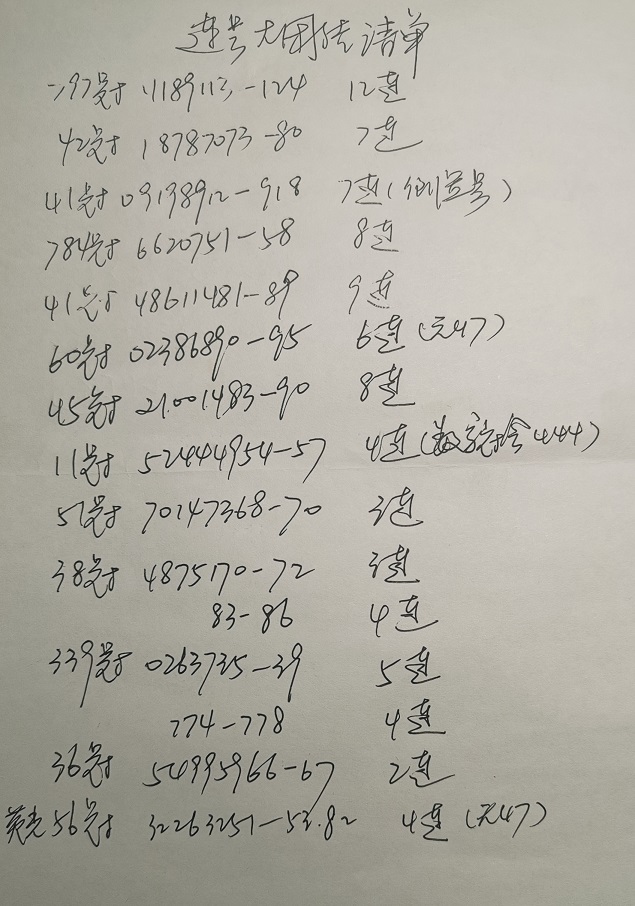 连号大团结清单
197号 1189113-124 12连
42号 18787073-80 7连
41号 09198912-918 7连(倒置号)
784号 6620751-58 8连
41号 48611481-89 9连
60号 02386890-95 6连(无47)
45号 21001483-90 8连
11号 52444954-57 4连(数字含444)
51号 70147368-70 3连
38号 4875170-72 3连
83-86 4连
339号 0263735-39 5连
774-778 4连
36号 54995966-67 2连
56号 32263251-53.82 4连(无47)